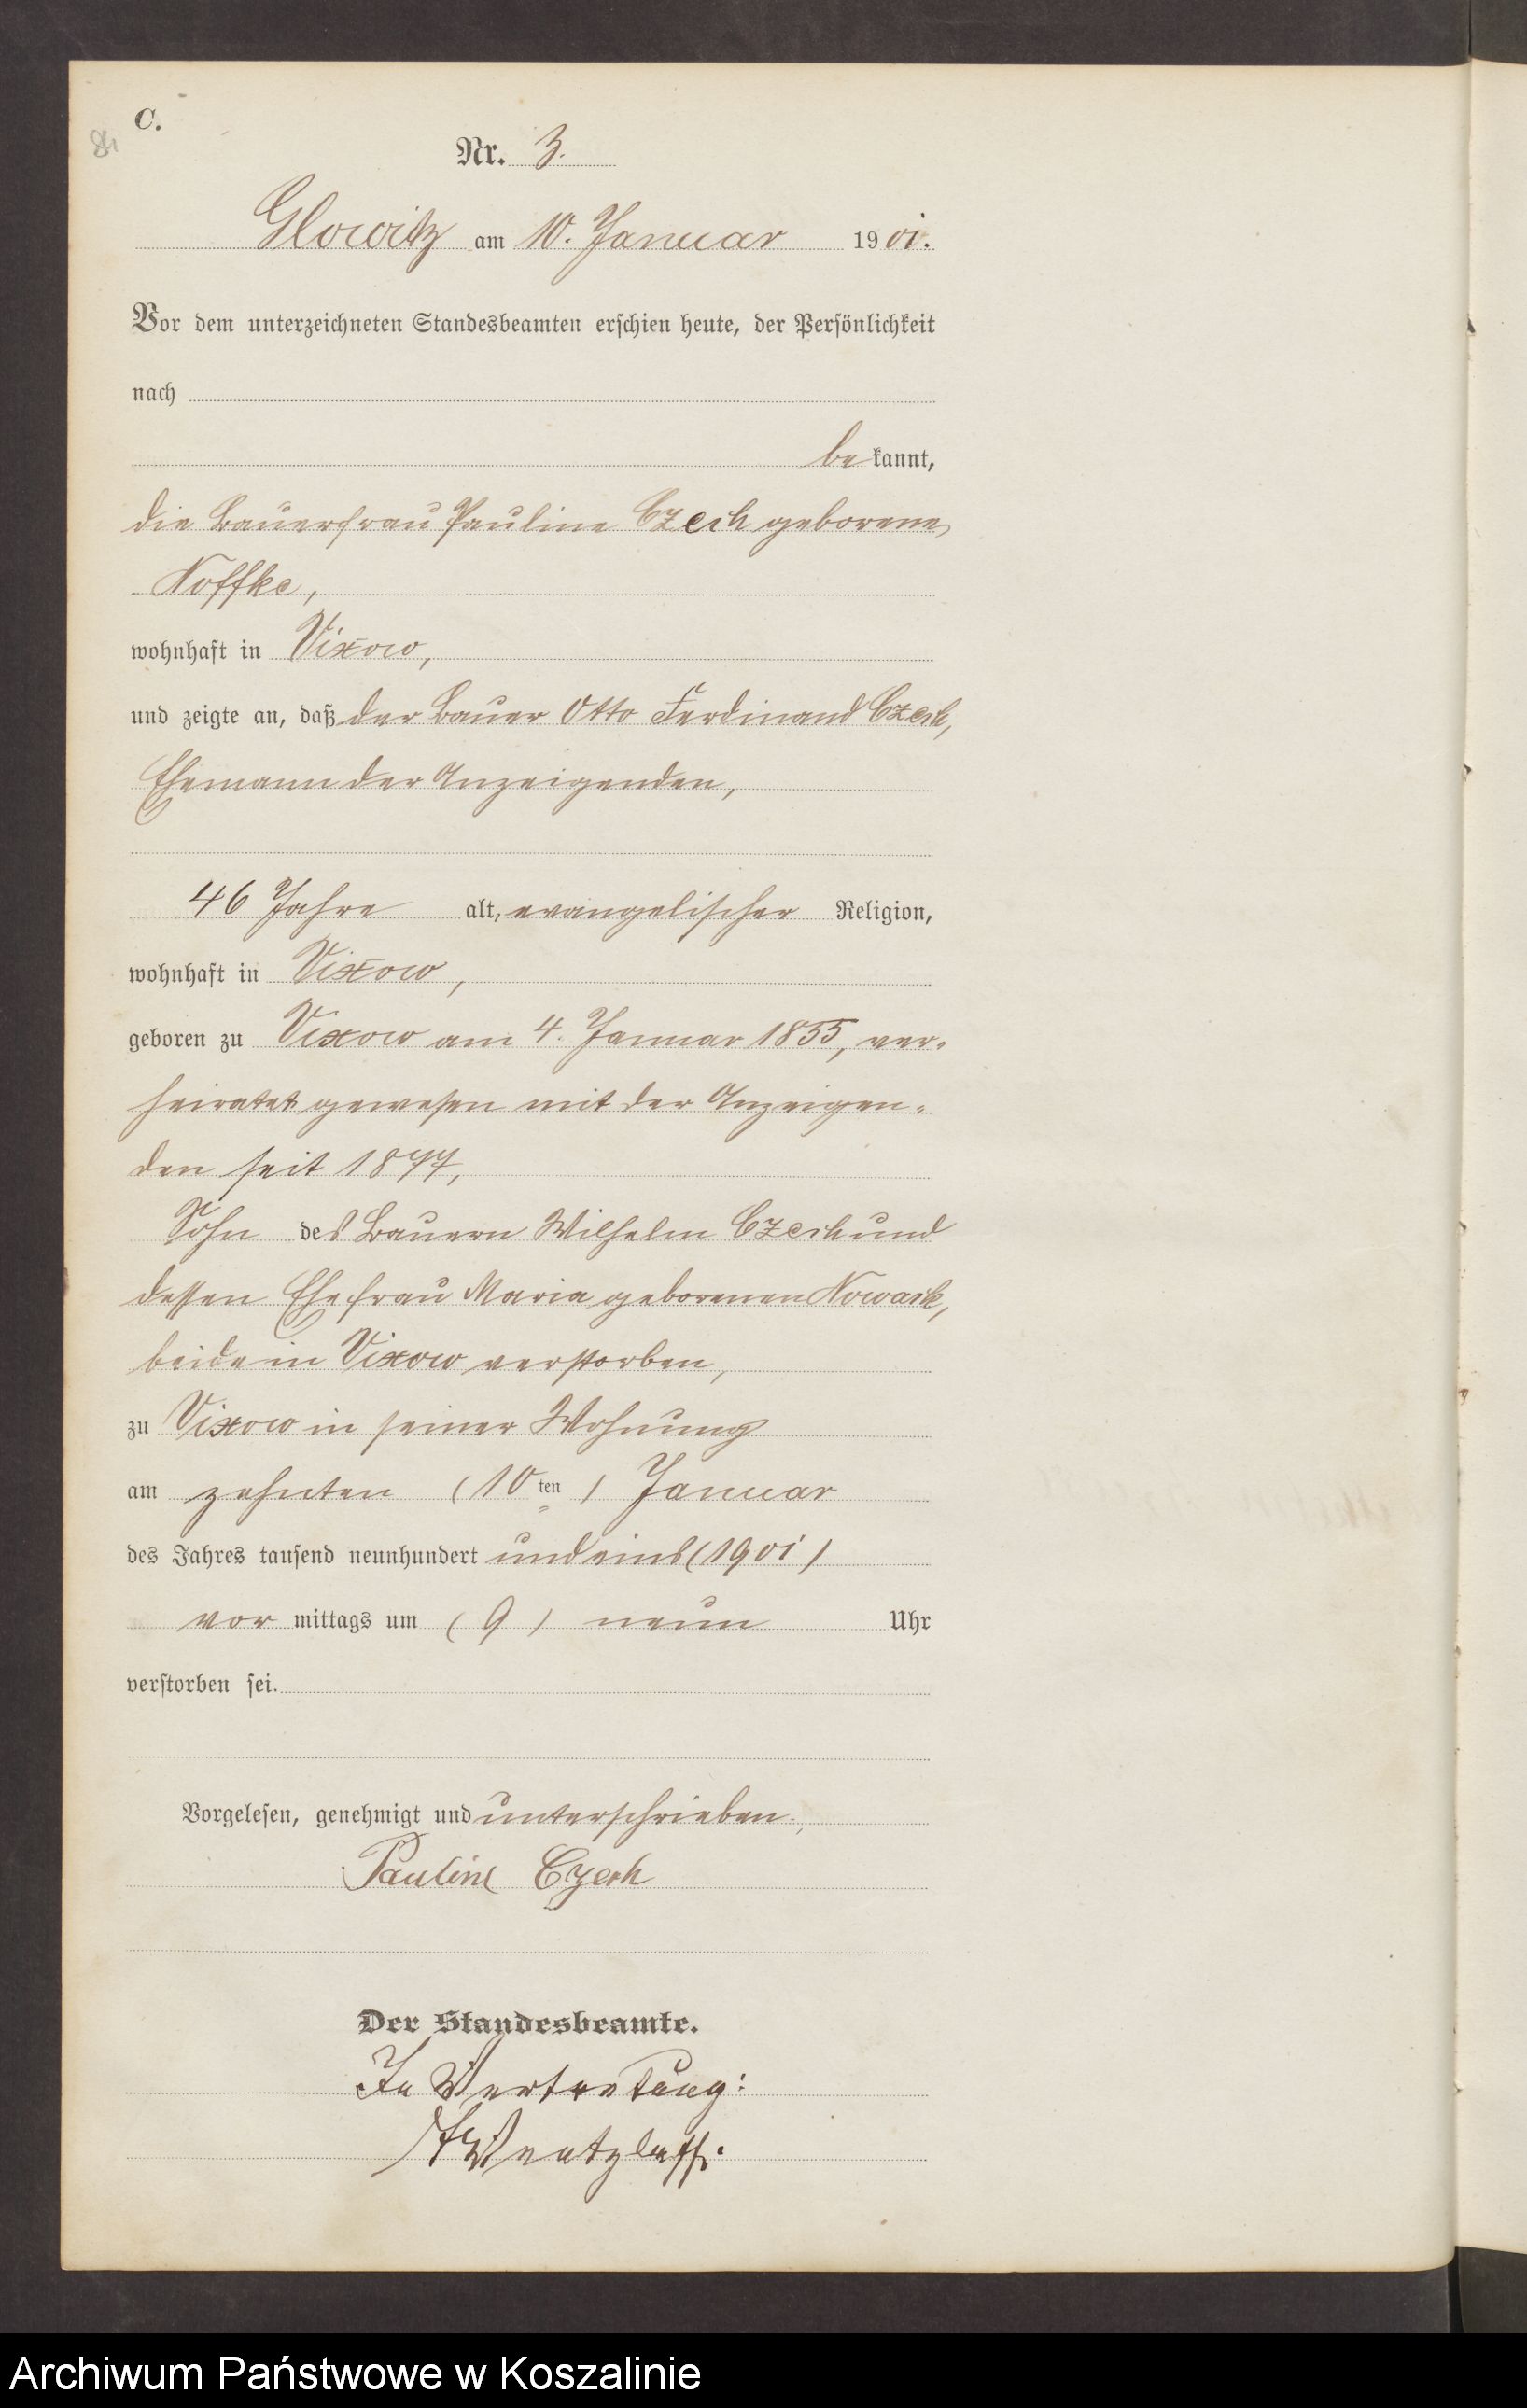 C.
84
Nr. 3.
Glowitz am 10. Januar 1901.
Vor dem unterzeichneten Standesbeamten erschien heute, der Persönlichkeit
nach
bekannt,
die Bauerfrau Pauline Czech geborene
Noffke,
wohnhaft in Vixow,
und zeigte an, daß der Bauer Otto Ferdinand Czech,
Ehemann der Anzeigenden,
46 Jahre alt, evangelischer Religion,
wohnhaft in Vixow,
geboren zu Vixow am 4. Januar 1855, ver-
heiratet gewesen mit der Anzeigen-
den seit 1877,
Sohn des Bauern Wilhelm Czech und
dessen Ehefrau Maria geborenen Nowack,
beide in Vixow verstorben,
zu Vixow in seiner Wohnung
am zehnten (10ten) Januar
des Jahres tausend neunhundert und eins (1901)
vor mittags um (9) neun Uhr
verstorben sei.
Vorgelesen, genehmigt und unterschrieben.
Pauline Czech
Der Standesbeamte.
In Vertretung:
Wentzlaff.
Archiwum Państwowe w Koszalinie